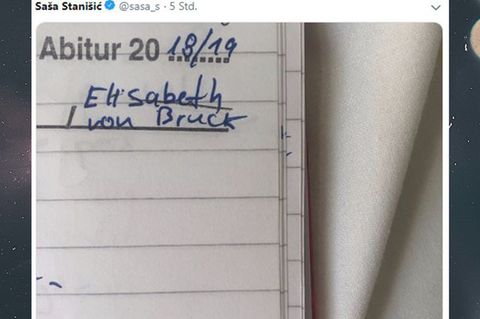 Saša Stanišić @sasa_s · 5 Std.
Abitur 20 18/19
Elisabeth
von Bruck